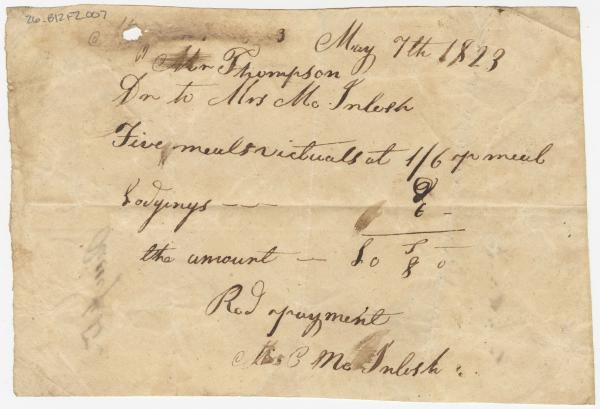 26-B12F2.007
3
May 7th 1823
Mr Thompson
Dr to Mrs McIntosh
Five meals victuals at 1/6 p meal
Lodgings —— 6 –
the amount — £0 8 0
Recd payment
McIntosh